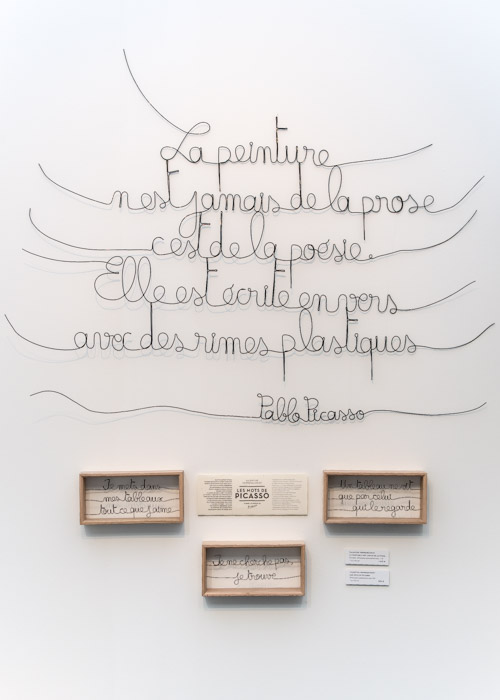 La peinture
n'est jamais de la prose
c'est de la poésie.
Elle est écrite en vers
avec des rimes plastiques
Pablo Picasso
Je mets dans
mes tableaux
tout ce que j'aime
LES MOTS DE
PICASSO
Un tableau ne vit
que par celui
qui le regarde
Je ne cherche pas,
je trouve